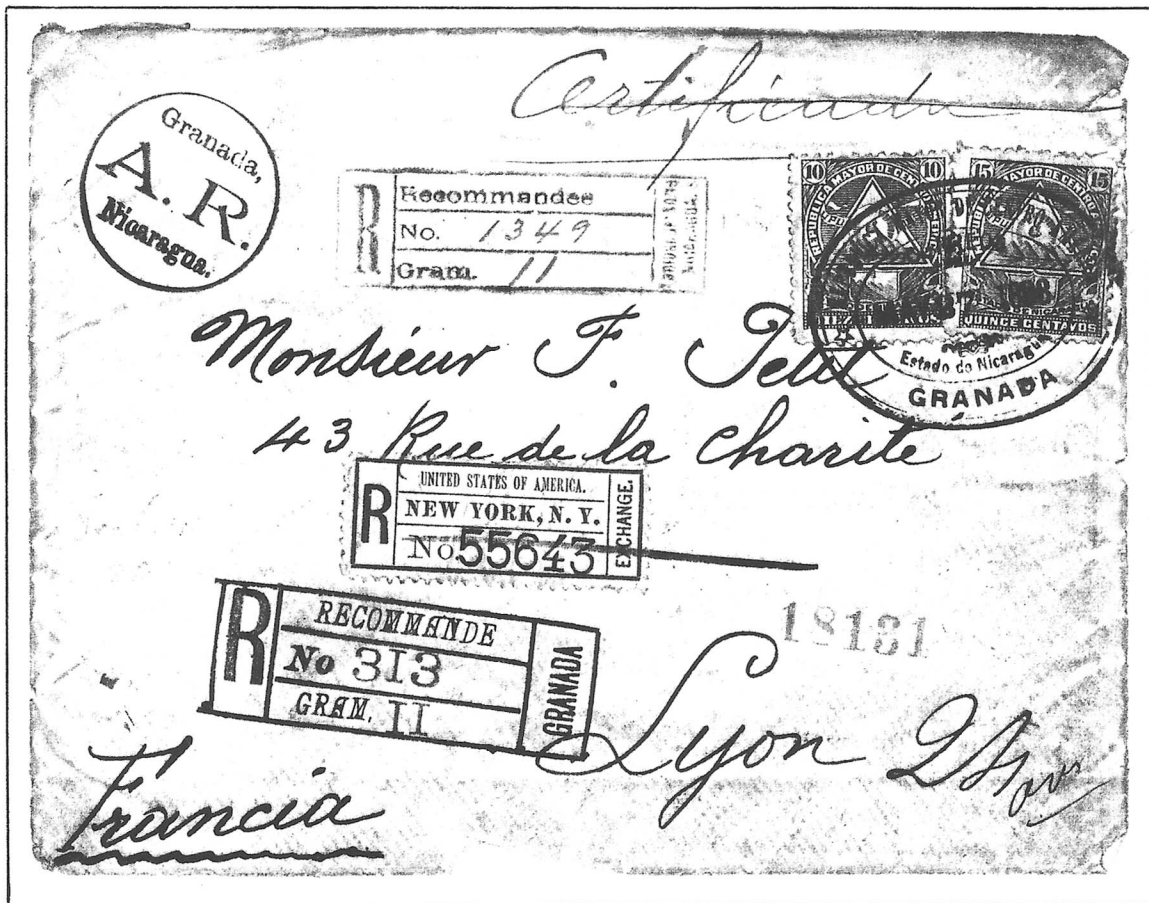 Certificada
Granada,
A. R.
Nicaragua.
R
Recommandee
No. 1349
Gram. 11
10 10
REPUBLICA MAYOR DE CENTRO
DIEZ CENTAVOS
15 15
MAYOR DE CENTRO
QUINCE CENTAVOS
Estado de Nicaragua
GRANADA
Monsieur F.
43 Rue de la Charité
R
UNITED STATES OF AMERICA.
NEW YORK, N. Y.
No 55643
EXCHANGE.
R
RECOMMANDE
No 313
GRAM. II
GRANADA
18131
Lyon
Francia